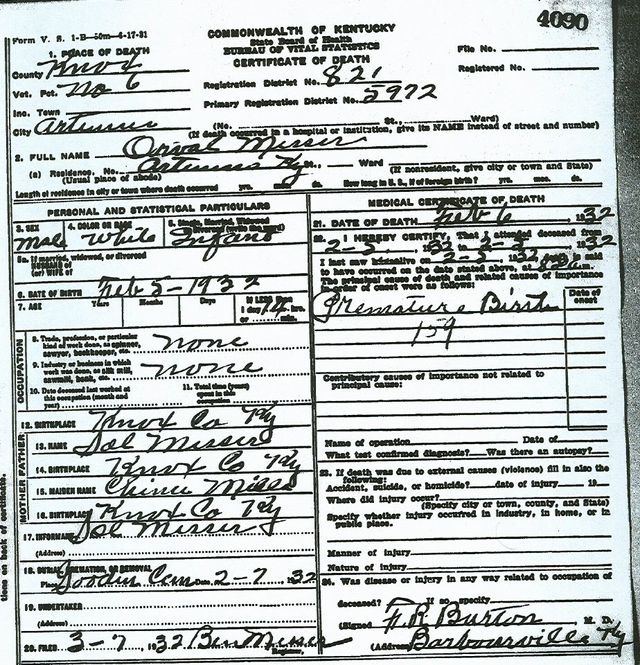 4090
Form V. S. 1-B—50m—4-17-31
COMMONWEALTH OF KENTUCKY
State Board of Health
BUREAU OF VITAL STATISTICS
CERTIFICATE OF DEATH
File No.
Registered No.
1. PLACE OF DEATH
County Knox
Vot. Pct. No 6
Registration District No. 821
Primary Registration District No. 5972
Inc. Town
City Artemus (No. St., Ward)
(If death occurred in a hospital or institution, give its NAME instead of street and number)
2. FULL NAME Orval Messer
(a) Residence. No. Artemus Ky St., Ward (If nonresident, give city or town and State)
(Usual place of abode)
Length of residence in city or town where death occurred yrs. mos. ds. How long in U. S., if of foreign birth? yrs. mos. ds.
PERSONAL AND STATISTICAL PARTICULARS
3. SEX 4. COLOR OR RACE 5. Single, Married, Widowed
Divorced (write the word)
Male White Infant
5a. If married, widowed, or divorced
HUSBAND of
(or) WIFE of
6. DATE OF BIRTH Feb 5-1932
7. AGE Years Months Days If LESS than
1 day 14 hrs.
or min.
OCCUPATION
8. Trade, profession, or particular
kind of work done, as spinner,
sawyer, bookkeeper, etc. none
9. Industry or business in which
work was done, as silk mill,
sawmill, bank, etc. none
10. Date deceased last worked at
this occupation (month and
year)
11. Total time (years)
spent in this
occupation
12. BIRTHPLACE Knox Co Ky
FATHER
13. NAME Sol Messer
14. BIRTHPLACE Knox Co Ky
MOTHER
15. MAIDEN NAME Mills
16. BIRTHPLACE Knox Co Ky
17. INFORMANT Sol Messer
(Address)
18. BURIAL, CREMATION, OR REMOVAL
Place Goodin Cem Date 2-7 1932
19. UNDERTAKER
(Address)
20. FILED 3-7, 1932 Ben Messer
Registrar.
MEDICAL CERTIFICATE OF DEATH
21. DATE OF DEATH Feb 6, 1932
22. I HEREBY CERTIFY, That I attended deceased from
2-5, 1932 to 2-5, 1932
I last saw him alive on 2-5, 1932 death is said
to have occurred on the date stated above, at m.
The principal cause of death and related causes of importance
in order of onset were as follows:
Date of
onset
Premature Birth
159
Contributory causes of importance not related to
principal cause:
Name of operation Date of
What test confirmed diagnosis? Was there an autopsy?
23. If death was due to external causes (violence) fill in also the
following:
Accident, suicide, or homicide? date of injury 19
Where did injury occur?
(Specify city or town, county, and State)
Specify whether injury occurred in industry, in home, or in
public place.
Manner of injury
Nature of injury
24. Was disease or injury in any way related to occupation of
deceased? If so, specify
(Signed F R Burton M. D.
(Address) Barbourville Ky
tions on back of certificate.